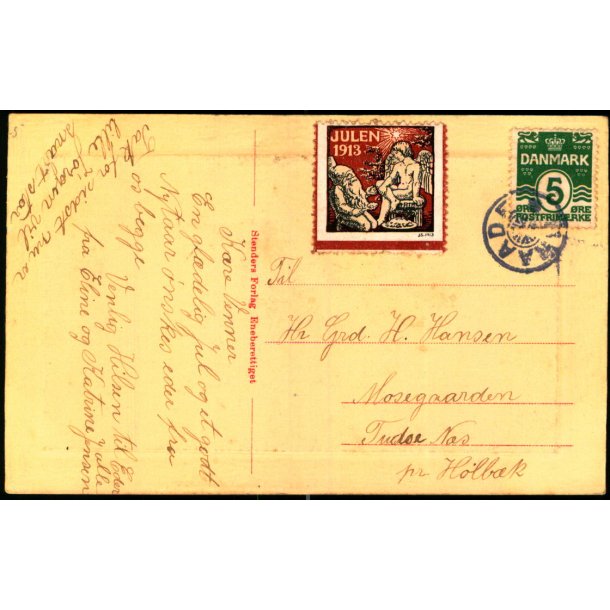 Kære Venner
En glædelig jul og et godt
Nytaar ønskes eder fra
os begge Venlig Hilsen til Eder alle
fra Eline og Katrine Jensen
Tak for sidst
lille Jørgen vil
snart
Stenders Forlag Eneberettiget
JULEN
1913
DANMARK
5
ØRE ØRE
POSTFRIMÆRKE
Til
Hr Grd. H. Hansen
Mosegaarden
Tudse Næs
pr Holbæk